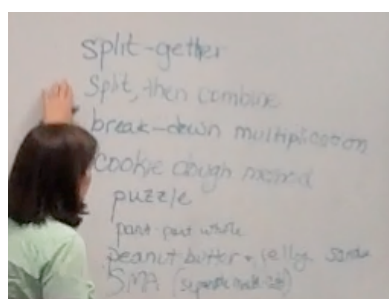 split-gether
Split, then combine
break-down multiplication
cookie dough method
puzzle
part-part whole
peanut butter + jelly
SMA